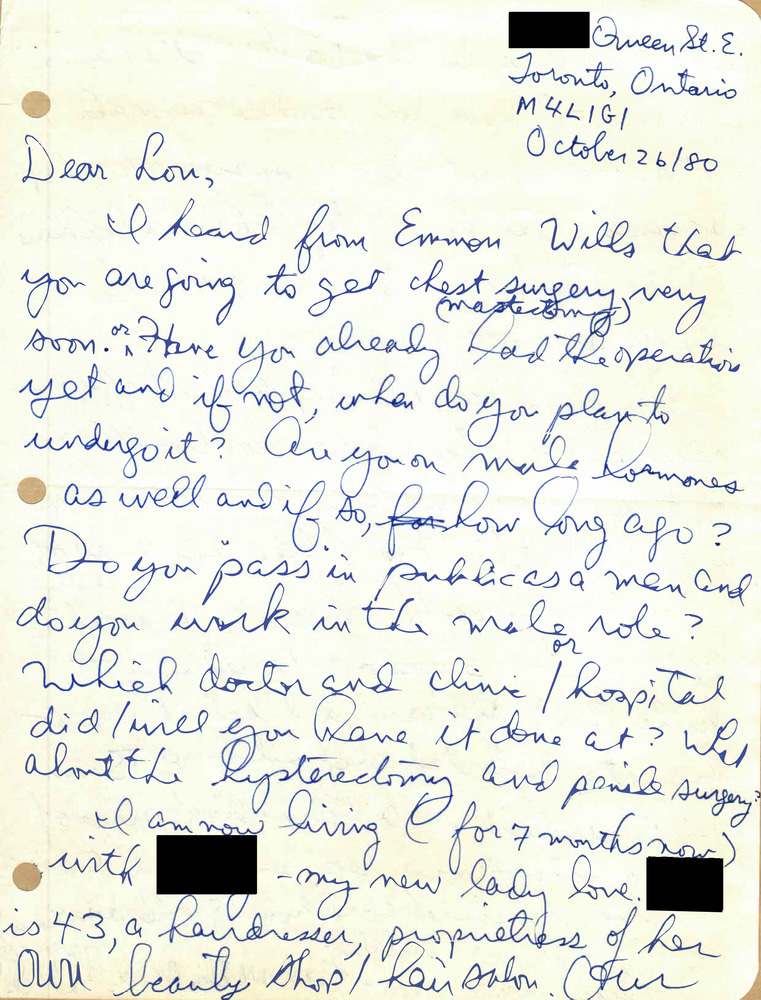 Queen St. E.
Toronto, Ontario
M4L1G1
October 26/80
Dear Lou,
I heard from Emmon Wills that
you are going to get chest surgery, very
(mastectomy)
soon. or Have you already had the operation
yet and if not, when do you plan to
undergo it? Are you on male hormones
as well and if so, for how long ago?
Do you "pass" in public as a man and
do you work in the male role?
Which doctor and clinic / or hospital
did/will you have it done at? What
about the hysterectomy and penile surgery?
I am now living (for 7 months now)
with - my new lady love.
is 43, a hairdresser, proprietress of her
own beauty shop / hair salon. (Our